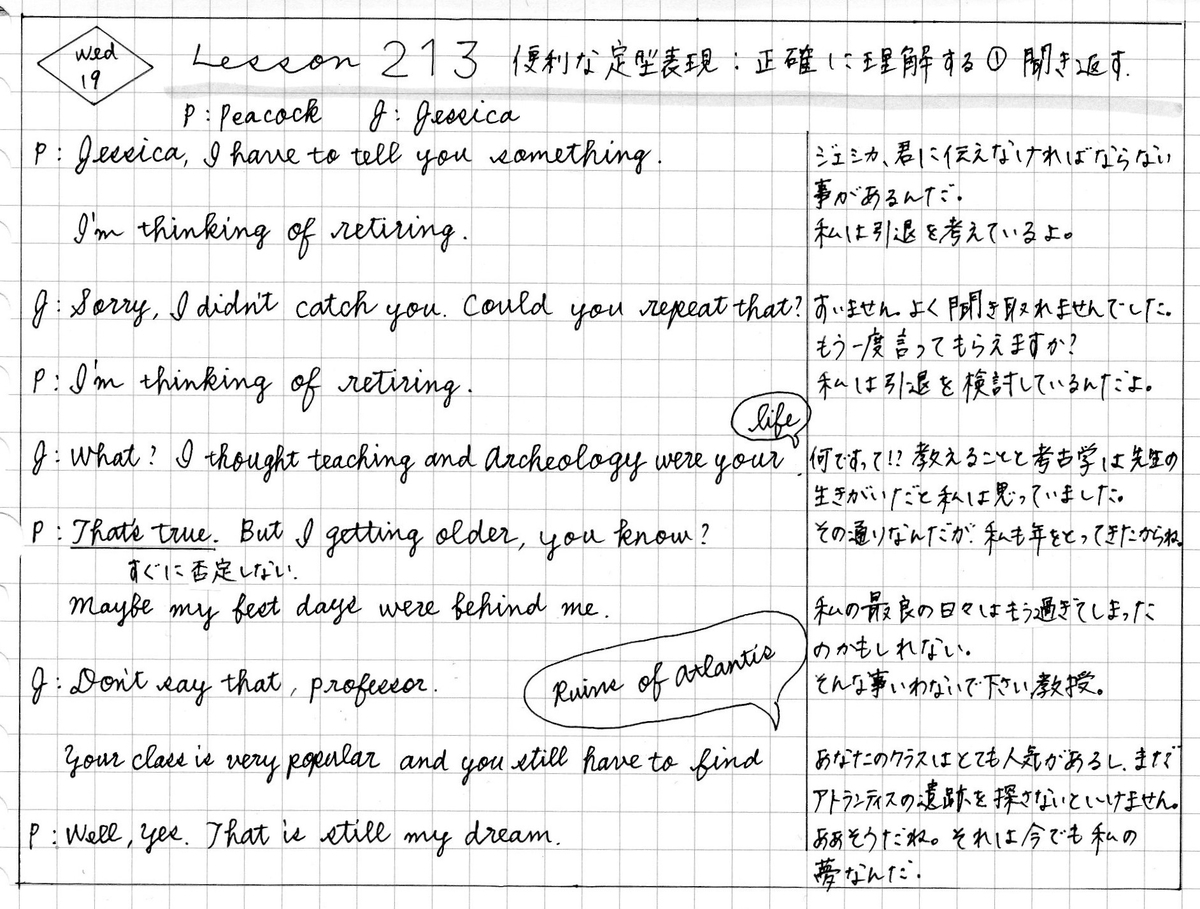 Wed
19
Lesson 213 便利な定型表現:正確に理解する① 聞き返す.
P:Peacock J:Jessica
P: Jessica, I have to tell you something.
ジェシカ、君に伝えなければならない
事があるんだ。
I'm thinking of retiring.
私は引退を考えているよ。
J: Sorry, I didn't catch you. Could you repeat that?
すいません。よく聞き取れませんでした。
もう一度言ってもらえますか?
P: I'm thinking of retiring.
私は引退を検討しているんだよ。
life
J: What? I thought teaching and Archeology were your.
何ですって!? 教えることと考古学は先生の
生きがいだと私は思っていました。
P: That's true. But I getting older, you know?
その通りなんだが、私も年をとってきたからね。
すぐに否定しない.
Maybe my best days were behind me.
私の最良の日々はもう過ぎてしまった
のかもしれない。
J: Don't say that, professor.
そんな事いわないで下さい,教授。
Ruins of Atlantis
Your class is very popular and you still have to find
あなたのクラスはとても人気があるし、まだ
アトランティスの遺跡を探さないといけません。
P: Well, yes. That is still my dream.
ああそうだね。それは今でも私の
夢なんだ.